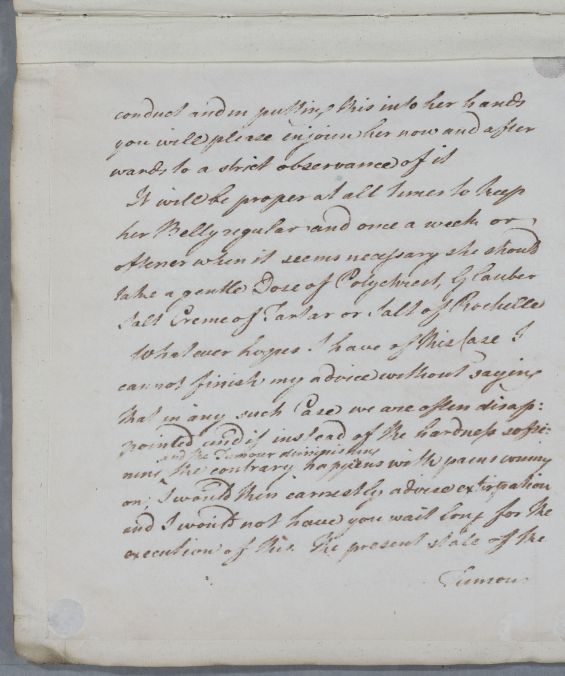 conduct and in putting this into her hands
you will please injoin her now and after
wards to a strict observance of it
It will be proper at all times to keep
her Belly regular and once a week or
oftener when it seems necessary she should
take a gentle Dose of Polychrest, Glauber
Salt Creme of Tartar or Salt of Rochelle
Whatever hopes I have of this Case I
cannot finish my advice without saying
that in any such Case we are often disap:
pointed and if instead of the hardness softe:
and the Tumour diminishing
ning, the contrary happens with pains coming
on, I would then earnestly advice extirpation
and I would not have you wait long for the
execution of this. The present state of the
Tumour